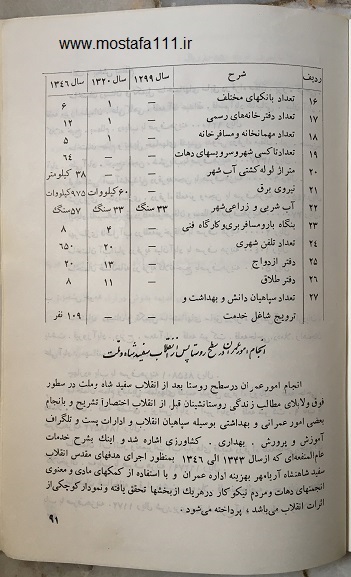 www.mostafa111.ir
ردیف شرح سال ۱۲۹۹ سال ۱۳۲۰ سال ۱۳۴۶
۱۶ تعداد بانکهای مختلف — ۱ ۶
۱۷ تعداد دفترخانه‌های رسمی — ۱ ۱۲
۱۸ تعداد مهمانخانه و مسافرخانه — ۱ ۵
۱۹ تعداد تاکسی شهر و سرویسهای دهات — — ۶۴
۲۰ متراژ لوله‌کشی آب شهر — — ۳۸ کیلومتر
۲۱ نیروی برق — ۶۰ کیلووات ۹۷۵ کیلووات
۲۲ آب شربی و زراعی شهر ۳۳ سنگ ۳۳ سنگ ۵۷ سنگ
۲۳ بنگاه باروسافربری و کارگاه فنی — ۴ ۸
۲۴ تعداد تلفن شهری — ۲۰ ۶۵۰
۲۵ دفتر ازدواج — ۱۳ ۲۰
۲۶ دفتر طلاق — ۱۱ ۸
۲۷ تعداد سپاهیان دانش و بهداشت و
ترویج شاغل خدمت — — ۱۰۹ نفر
انجام امور عمران در سطح روستا پس از انقلاب سفید شاه و ملت
انجام امور عمران درسطح روستا بعد از انقلاب سفید شاه وملت در سطور
فوق ولابلای مطالب زندگی روستانشینان قبل از انقلاب اختصاراً تشریح و بانجام
بعضی امور عمرانی و بهداشتی بوسیله سپاهیان انقلاب و ادارات پست و تلگراف
آموزش و پرورش . بهداری . کشاورزی اشاره شد و اینك بشرح خدمات
عام‌المنفعه‌ای که از سال ۱۳۴۳ الی ۱۳۴۶ بمنظور اجرای هدفهای مقدس انقلاب
سفید شاهنشاه آریامهر بهزینه اداره عمران و با استفاده از کمکهای مادی و معنوی
انجمنهای دهات و مردم نیکوکار در هریك از بخشها تحقق یافته و نمودار کوچکی از
اثرات انقلاب می‌باشد ، پرداخته می‌شود .
۹۱